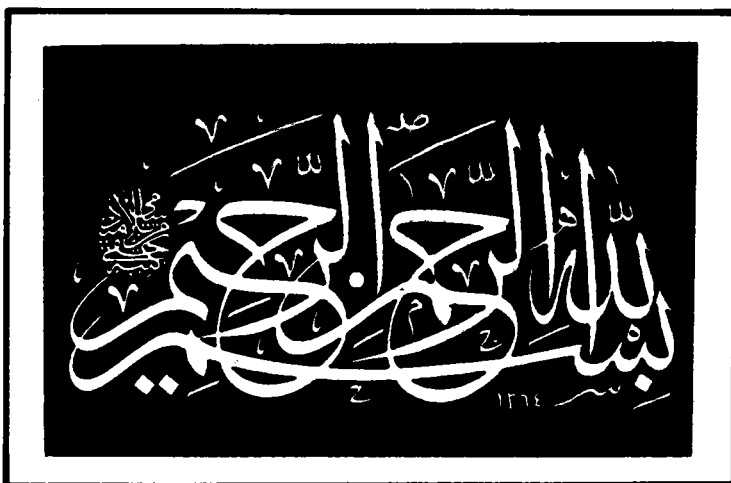 بسم الله الرحمن الرحيم
١٢٦٤